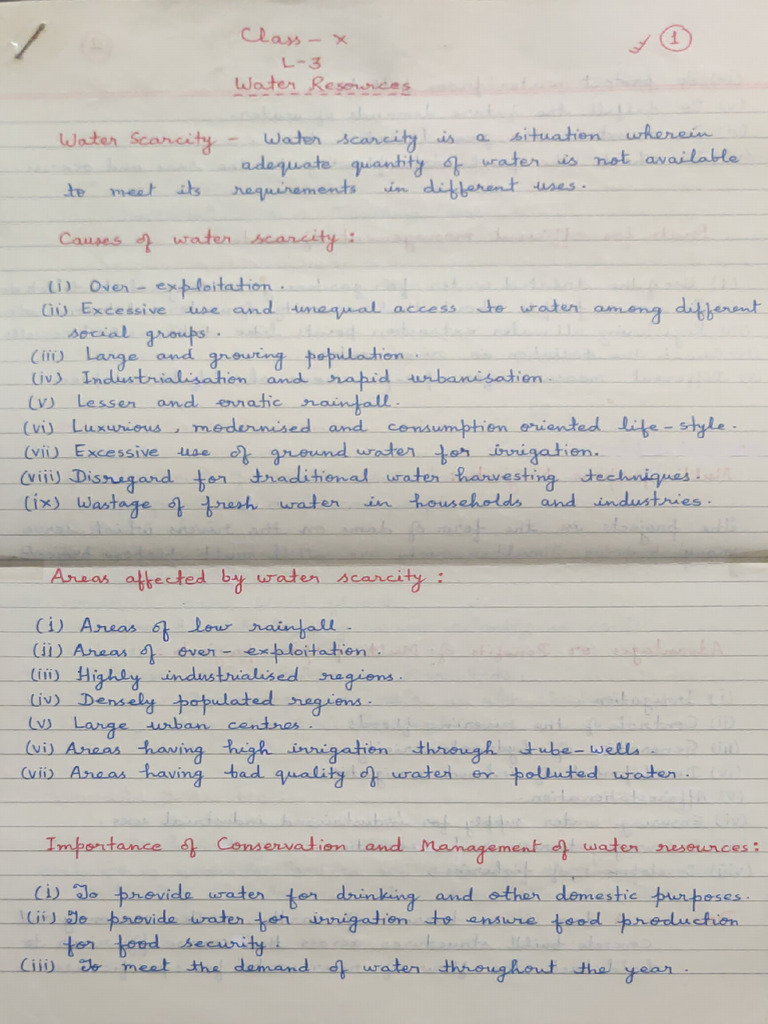 Class - X
1
L-3
Water Resources
Water Scarcity - Water scarcity is a situation wherein
adequate quantity of water is not available
to meet its requirements in different uses.
Causes of water scarcity :
(i) Over-exploitation.
(ii) Excessive use and unequal access to water among different
social groups.
(iii) Large and growing population.
(iv) Industrialisation and rapid urbanisation.
(v) Lesser and erratic rainfall.
(vi) Luxurious, modernised and consumption oriented life-style.
(vii) Excessive use of ground water for irrigation.
(viii) Disregard for traditional water harvesting techniques.
(ix) Wastage of fresh water in households and industries.
Areas affected by water scarcity :
(i) Areas of low rainfall.
(ii) Areas of over-exploitation.
(iii) Highly industrialised regions.
(iv) Densely populated regions.
(v) Large urban centres.
(vi) Areas having high irrigation through tube-wells.
(vii) Areas having bad quality of water or polluted water.
Importance of Conservation and Management of water resources :
(i) To provide water for drinking and other domestic purposes.
(ii) To provide water for irrigation to ensure food production
for food security.
(iii) To meet the demand of water throughout the year.